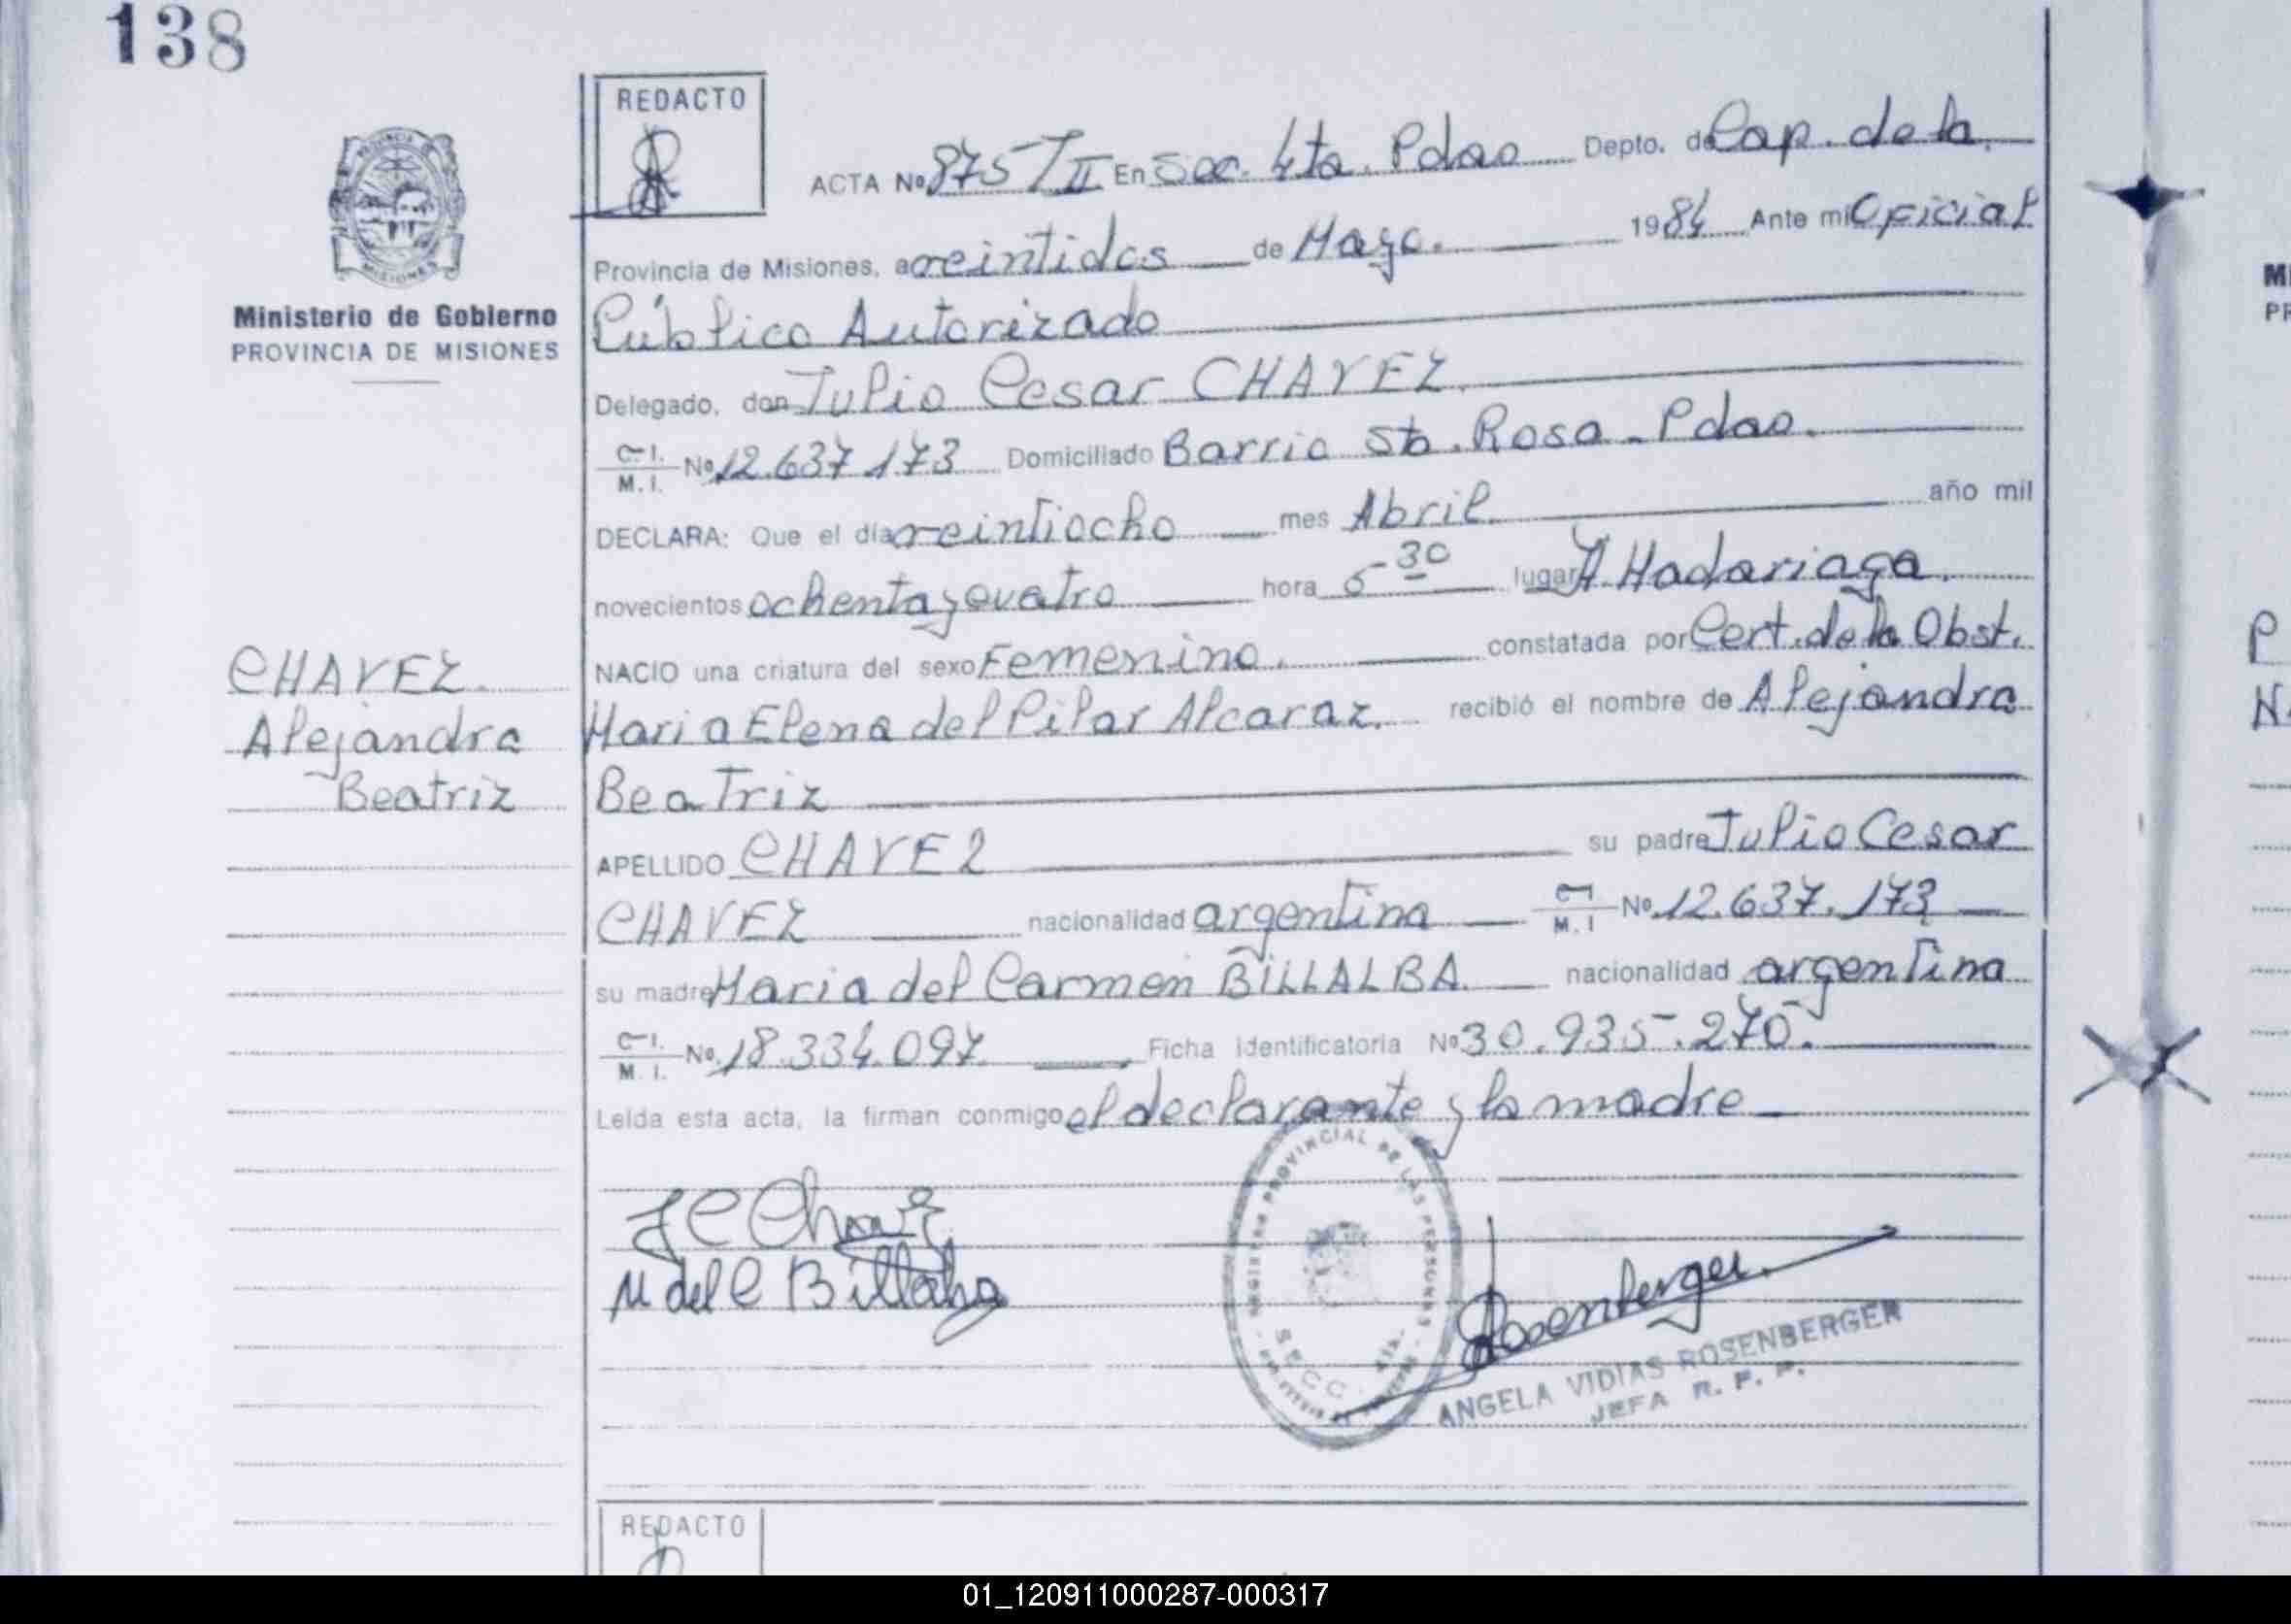 138
REDACTO
ACTA Nº 875 T II En Sec. 4ta. Pdas Depto. de Cap. de la
Provincia de Misiones, a veintidos de Mayo. 1984 Ante mi Oficial
Público Autorizado
Ministerio de Gobierno
PROVINCIA DE MISIONES
Delegado, don Julio Cesar CHAVEZ.
C.I. M.I. Nº 12.637.173 Domiciliado Barrio Sta. Rosa - Pdas.
DECLARA: Que el día veintiocho mes Abril. año mil
novecientos ochenta y cuatro hora 5-30 lugar H. Madariaga.
NACIO una criatura del sexo Femenino. constatada por Cert. de la Obst.
Maria Elena del Pilar Alcaraz. recibió el nombre de Alejandra
Beatriz
CHAVEZ.
Alejandra
Beatriz
APELLIDO CHAVEZ su padre Julio Cesar
CHAVEZ nacionalidad argentina C.I. M.I Nº 12.637.173
su madre Maria del Carmen BILLALBA. nacionalidad argentina
C.I. M.I. Nº 18.334.097. Ficha Identificatoria Nº 30.935.270.
Leída esta acta, la firman conmigo el declarante y la madre
J C Chavez
M del C Billalba
REGISTRO PROVINCIAL DE LAS PERSONAS
SECC. 4ta.
Rosenberger.
ANGELA VIDIAS ROSENBERGER
JEFA R. P. P.
REDACTO
01_120911000287-000317